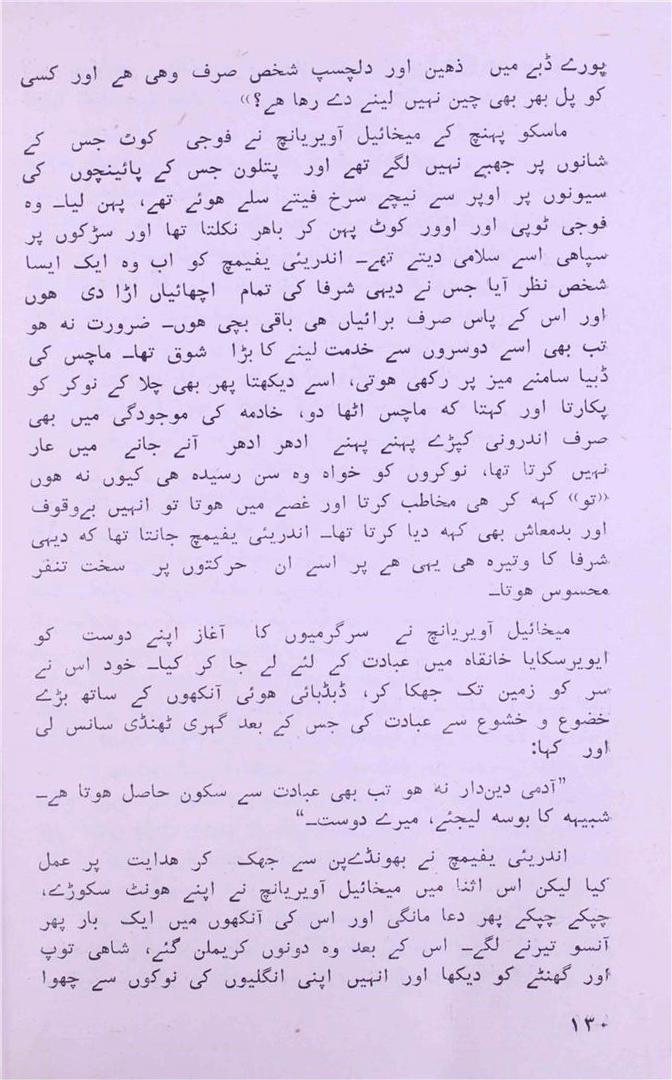 پورے ڈبے میں ذهین اور دلچسپ شخص صرف وهی هے اور کسی
کو پل بھر بھی چین نہیں لینے دے رها هے؟»
ماسکو پہنچ کے میخائیل آویریانچ نے فوجی کوٹ جس کے
شانوں پر جھبے نہیں لگے تھے اور پتلون جس کے پائینچوں کی
سیونوں پر اوپر سے نیچے سرخ فیتے سلے هوئے تھے، پہن لیا۔ وه
فوجی ٹوپی اور اوور کوٹ پہن کر باهر نکلتا تھا اور سڑکوں پر
سپاهی اسے سلامی دیتے تھے۔ اندریئی یفیمچ کو اب وه ایک ایسا
شخص نظر آیا جس نے دیہی شرفا کی تمام اچھائیاں اڑا دی هوں
اور اس کے پاس صرف برائیاں هی باقی بچی هوں۔ ضرورت نه هو
تب بھی اسے دوسروں سے خدمت لینے کا بڑا شوق تھا۔ ماچس کی
ڈبیا سامنے میز پر رکھی هوتی، اسے دیکھتا پھر بھی چلا کے نوکر کو
پکارتا اور کہتا که ماچس اٹھا دو، خادمه کی موجودگی میں بھی
صرف اندرونی کپڑے پہنے پہنے ادھر ادھر آنے جانے میں عار
نہیں کرتا تھا، نوکروں کو خواه وه سن رسیده هی کیوں نه هوں
«تو» کہه کر هی مخاطب کرتا اور غصے میں هوتا تو انہیں بےوقوف
اور بدمعاش بھی کہه دیا کرتا تھا۔ اندریئی یفیمچ جانتا تھا که دیہی
شرفا کا وتیره هی یہی هے پر اسے ان حرکتوں پر سخت تنفر
محسوس هوتا۔
میخائیل آویریانچ نے سرگرمیوں کا آغاز اپنے دوست کو
ایویرسکایا خانقاه میں عبادت کے لئے لے جا کر کیا۔ خود اس نے
سر کو زمین تک جھکا کر، ڈبڈبائی هوئی آنکھوں کے ساتھ بڑے
خضوع و خشوع سے عبادت کی جس کے بعد گہری ٹھنڈی سانس لی
اور کہا:
”آدمی دین‌دار نه هو تب بھی عبادت سے سکون حاصل هوتا هے۔
شبیہه کا بوسه لیجئے، میرے دوست۔“
اندریئی یفیمچ نے بھونڈےپن سے جھک کر هدایت پر عمل
کیا لیکن اس اثنا میں میخائیل آویریانچ نے اپنے هونٹ سکوڑے،
چپکے چپکے پھر دعا مانگی اور اس کی آنکھوں میں ایک بار پھر
آنسو تیرنے لگے۔ اس کے بعد وه دونوں کریملن گئے، شاهی توپ
اور گھنٹے کو دیکھا اور انہیں اپنی انگلیوں کی نوکوں سے چھوا
۱۳۰